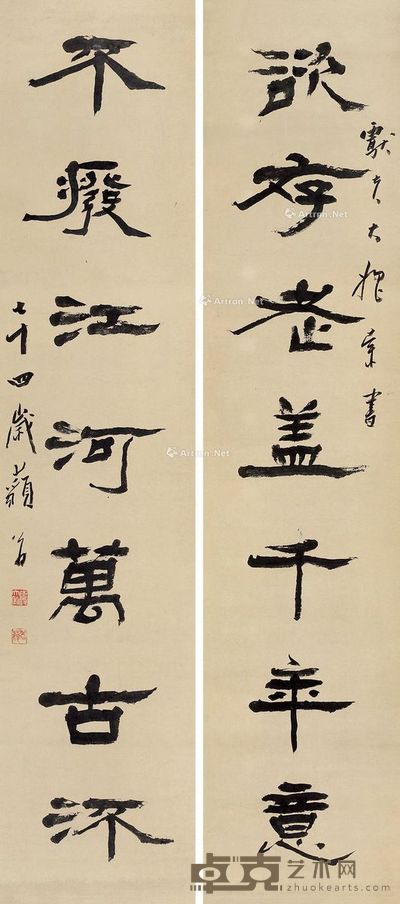 獻大雅索書
欲存老盖千年意
不廢江河萬古流
七十四歲藐翁
Artron.Net
Artron.Net
Artron.Net
Artron.Net
卓克艺术网
zhuokearts.com